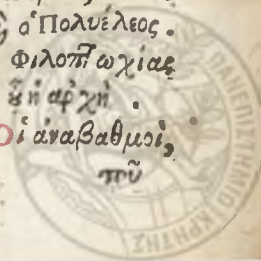 ὁ Πολυέλεος.
Φιλοπτωχίας
ἡ ἀρχὴ.
Οἱ ἀναβαθμοὶ,
τοῦ
ΠΑΝΕΠΙΣΤΗΜΙΟ ΚΡΗΤΗΣ